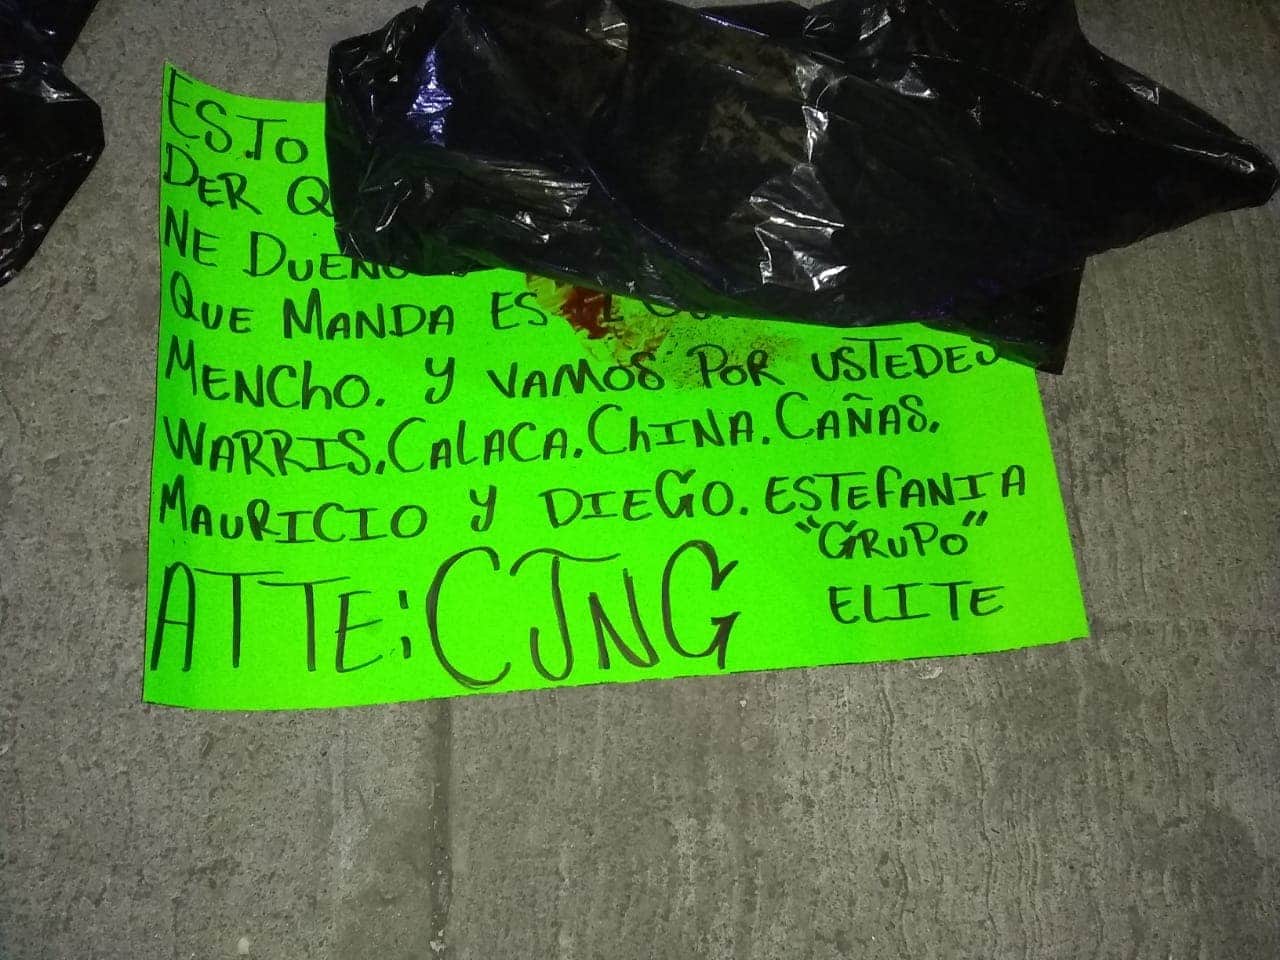 ESTO
DER Q
NE DUEÑO
QUE MANDA ES
MENCHO. Y VAMOS POR USTEDES
WARRIS. CALACA. CHINA. CAÑAS.
MAURICIO Y DIEGO. ESTEFANIA
"GRUPO"
ATTE: CJNG ELITE